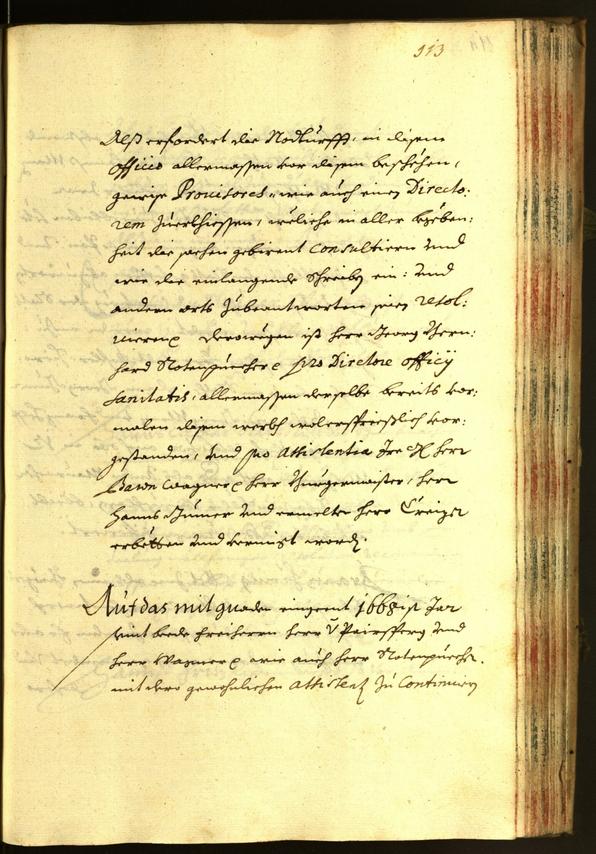 313
Alß erfordert die Nodturfft, in disem
officio allermassen vor disem beschehen,
gewise Provisores, wie auch einen Directo:
rem zuerkhiessen, weliche in aller begeben:
heit die sachen gebirent consultiern und
wie die einlangende schreiben ein: und
andern orts zubeantworten seien resol:
viern. Derowegen ist herr Georg Bern:
hard Rotenpuecher pro Directore officij
sanitatis, allermassen derselbe bereits vor:
malen disem werkh wolersprieslich vor:
gestanden, und pro Assistentia Ire herr
Baron Wagner herr Burgermaister, herr
Hanns und ermelter herr Creizer
erbetten und vermigt worden.
Auf das mit gnaden eingeent 1668ist Jar
seint beede freiherrn herr v Pairsperg und
herr Wagner wie auch herr Rotenpuecher
mit dero gewohnlichen Assistenz zu Continuiern